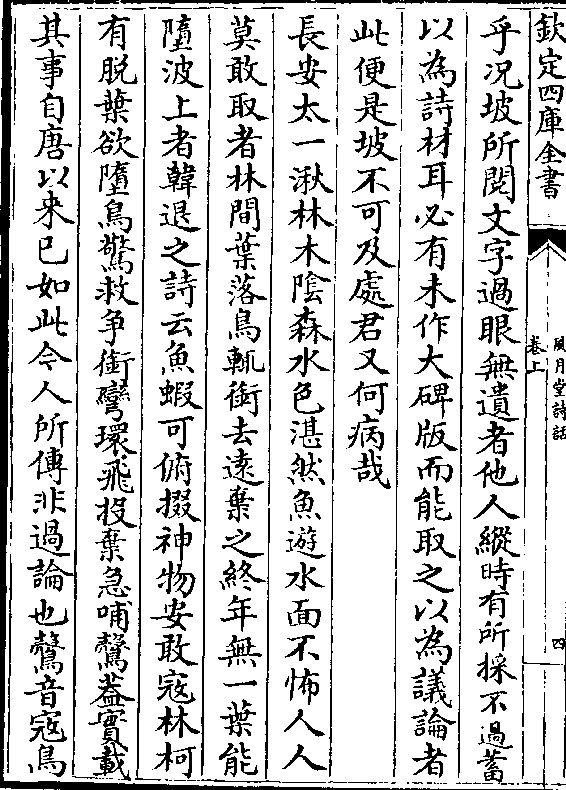 欽定四庫全書
風月堂詩話
卷上
四
乎况坡所閲文字過眼無遺者他人縱時有所採不過蓄
以為詩材耳必有未作大碑版而能取之以為議論者
此便是坡不可及處君又何病哉
長安太一湫林木陰森水色湛然魚遊水面不怖人人
莫敢取者林間葉落鳥輒銜去遠棄之終年無一葉能
墮波上者韓退之詩云魚蝦可俯掇神物安敢寇林柯
有脱葉欲墮鳥驚救争銜彎環飛投棄急哺鷇葢實載
其事自唐以来已如此今人所傳非過論也鷇音寇鳥